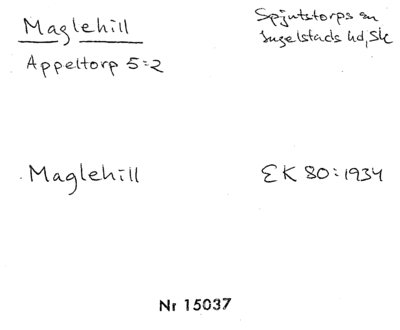 Maglehill
Spjutstorps sn
Ingelstads hd, Sk
Appeltorp 5:2
Maglehill
EK 80:1934
Nr 15037